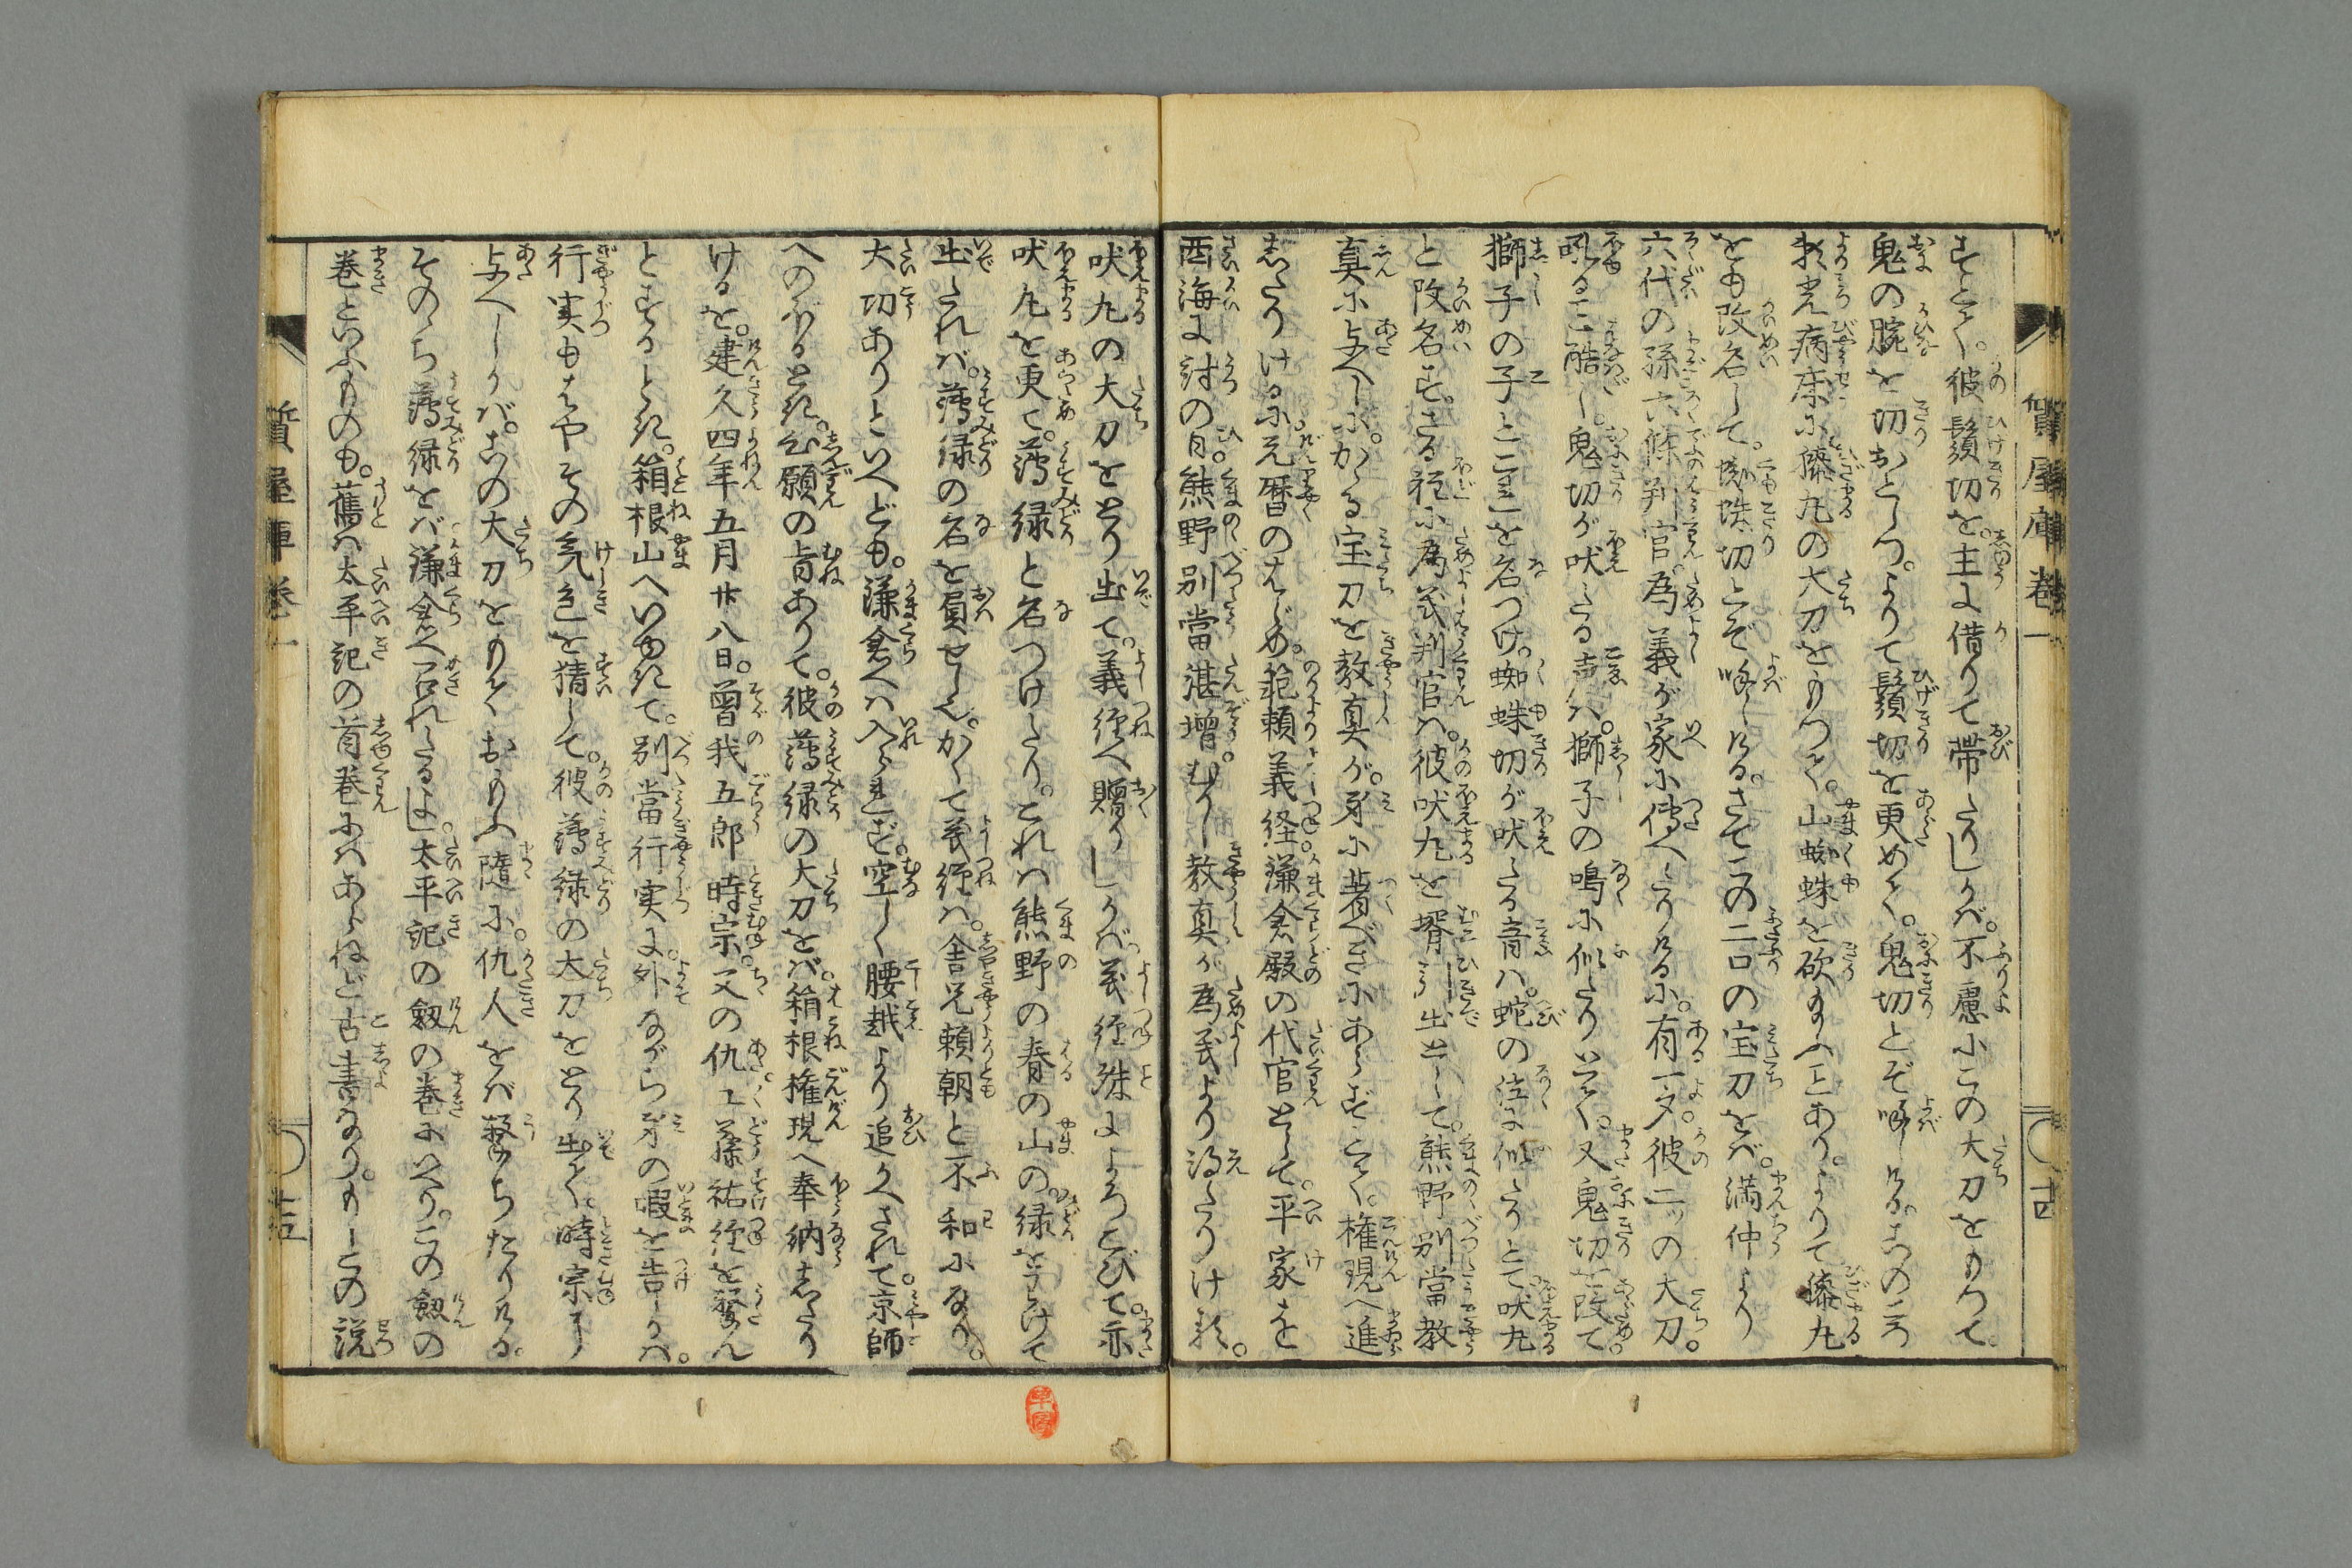 質屋庫巻一
すとて。彼鬚切を主に借りて帯たりしかば。不慮にこの大刀をもつて
鬼の腕を切おとしつ。よりて鬚切を更めて。鬼切とぞ喚ける。その
頼光病床に膝丸の大刀をもつて。山蜘蛛を砍給ふことあり。よりて膝丸
をも改名して。蜘蛛切とぞ喚ける。さてこの二口の宝刀をば。満仲より
六代の孫六條判官。為義が家に傳へたりけるに。有一夕。彼二ッの大刀。
吼ること酷し。鬼切が吠たる声は。獅子の鳴に似たりとて。又鬼切を改て
獅子の子とこれを名つけ。蜘蛛切が吠たる音は。蛇の泣に似たりとて。吠丸
と改名す。さる程に為義判官は。彼吠丸を壻引出として。熊野別當教
真に与へしに。かゝる宝刀を教真が。身に著べきにあらずとて。権現へ進
したりけるに。元暦のはじめ。範頼義経。鎌倉殿の代官として。平家を
西海に討の日。熊野別當湛増。むかし教真が為義より得たりける。
吠丸の大刀をとり出て。義経へ贈りしかば。義経殊によろこびて。亦
吠丸を更て。薄緑と名つけたり。これは熊野の春の山の。緑をわけて
出たれば。薄緑の名を負せしを。かくて義経は。舎兄頼朝と不和になり。
大功ありといへども。鎌倉へは入られず。空しく腰越より追かへされて。京師
へのぼるとき。心願の旨ありて。彼薄緑の大刀をば。箱根権現へ奉納したり
けるを。建久四年五月廿八日。曽我五郎時宗。父の仇工藤祐経を撃ん
とするとき。箱根山へいゆきて。別當行実に。外ながら身の暇を告しかば。
行実もはやその気色を猜して。彼薄緑の大刀をとり出て。時宗に
与へしかば。その大刀をもておもふ隨に。仇人をば撃ちたりける。
そのゝち薄緑をば鎌倉へ召れたるよし太平記の剱の巻にいへり。この剱の
巻といふものも。舊は太平記の首巻にはあらねど古書なり。もしこの説
質屋庫巻一